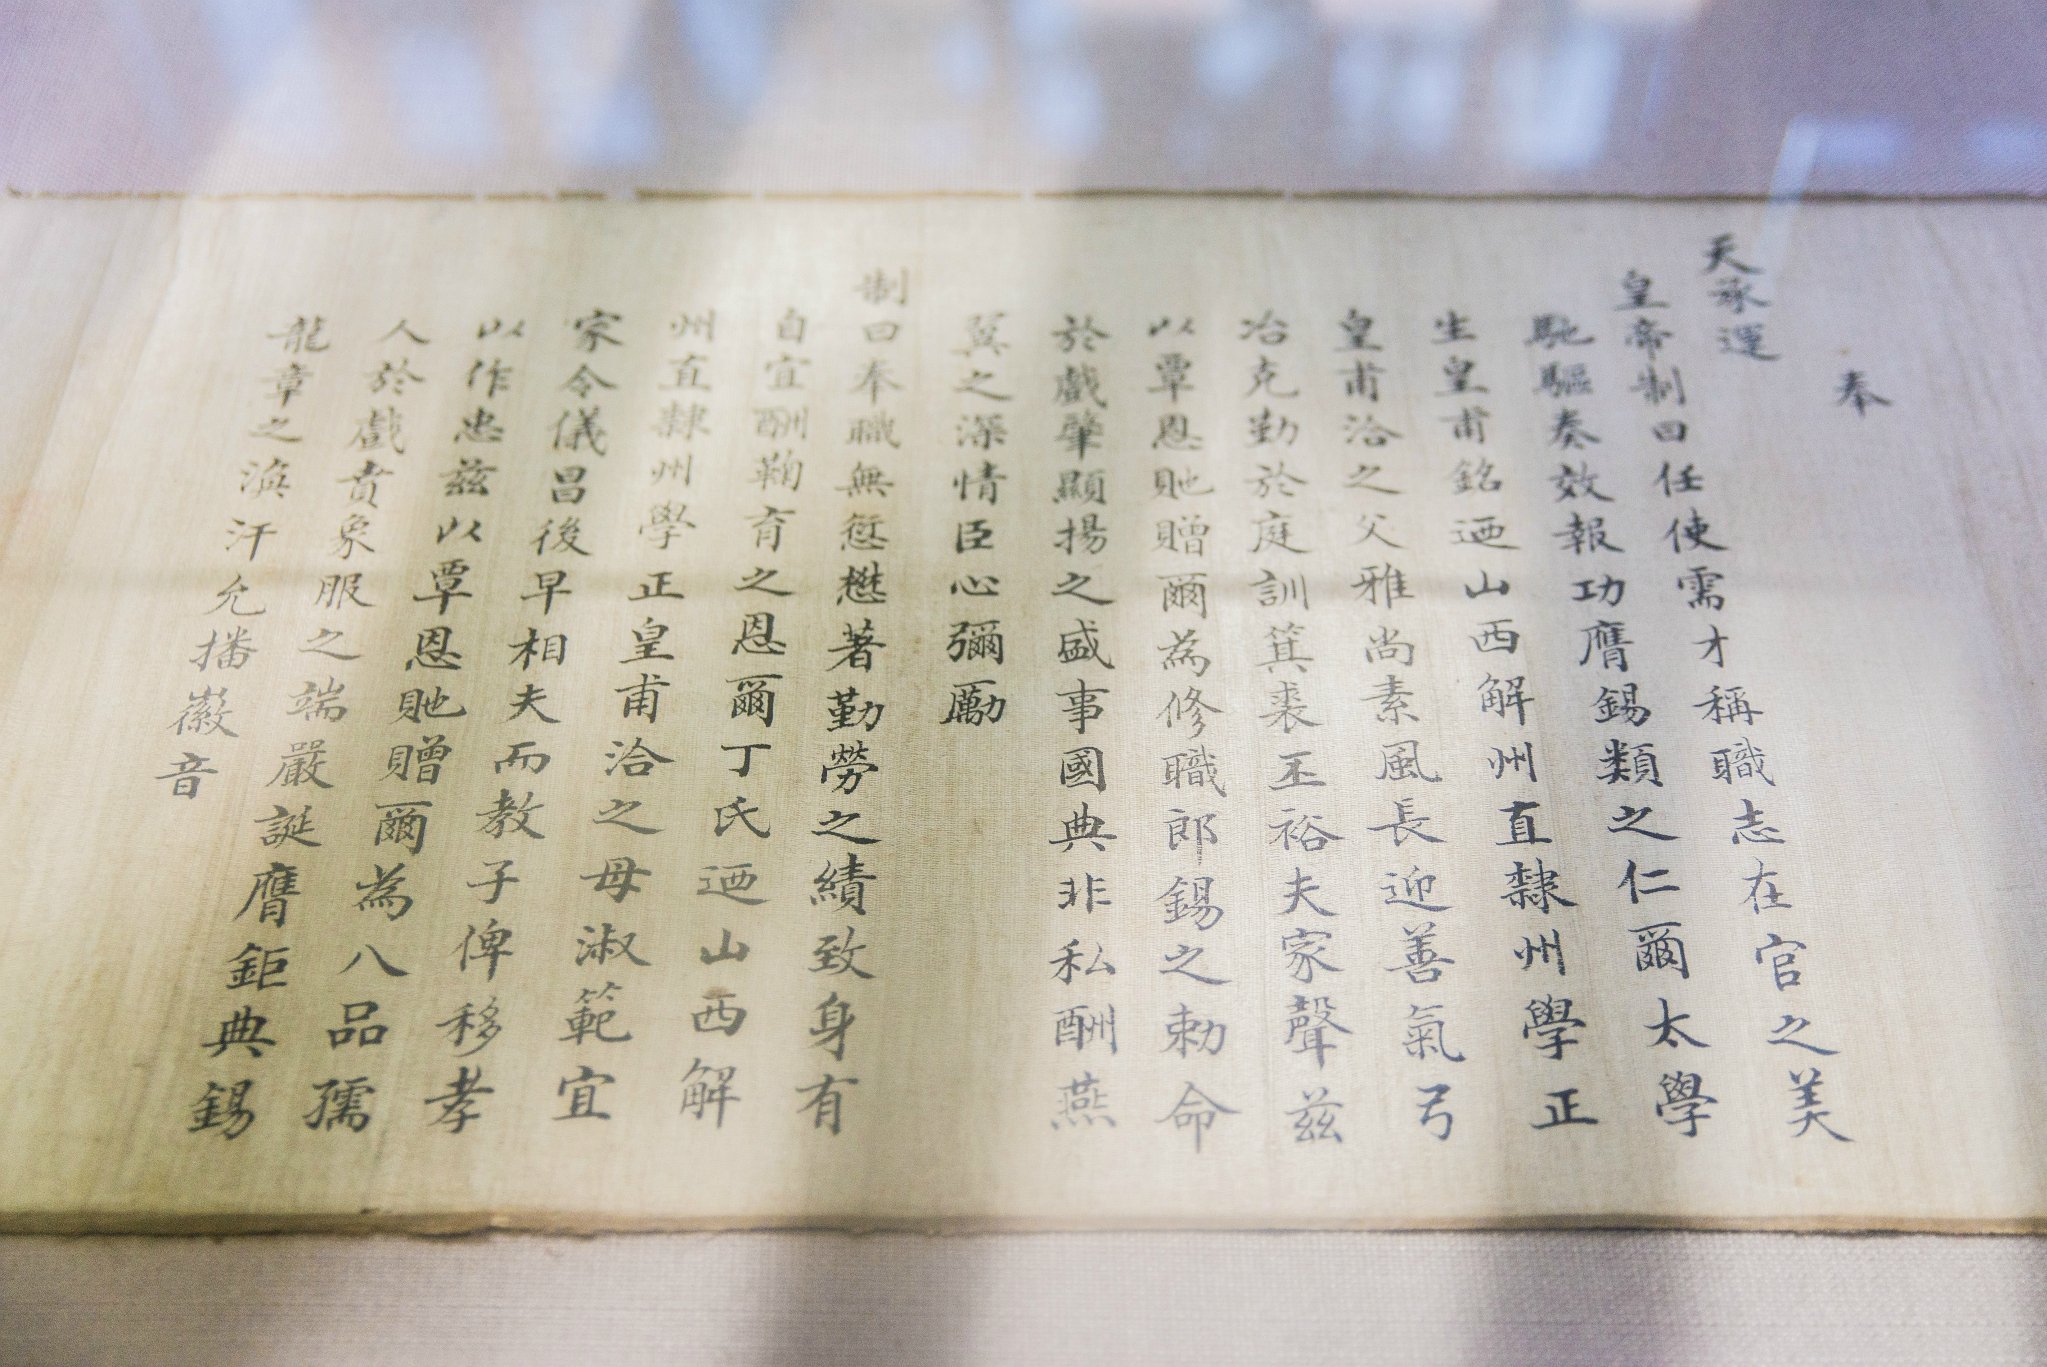 奉
天承運
皇帝制曰任使需才稱職志在官之美
馳驅奏效報功膺錫類之仁爾太學
生皇甫銘迺山西解州直隸州學正
皇甫洽之父雅尚素風長迎善氣弓
冶克勤於庭訓箕裘丕裕夫家聲茲
以覃恩貤贈爾為修職郎錫之勅命
於戲肇顯揚之盛事國典非私酬燕
翼之深情臣心彌勵
制曰奉職無愆懋著勤勞之績致身有
自宜酬鞠育之恩爾丁氏迺山西解
州直隸州學正皇甫洽之母淑範宜
家令儀昌後早相夫而教子俾移孝
以作忠茲以覃恩貤贈爾為八品孺
人於戲賁象服之端嚴誕膺鉅典錫
龍章之渙汗允播徽音